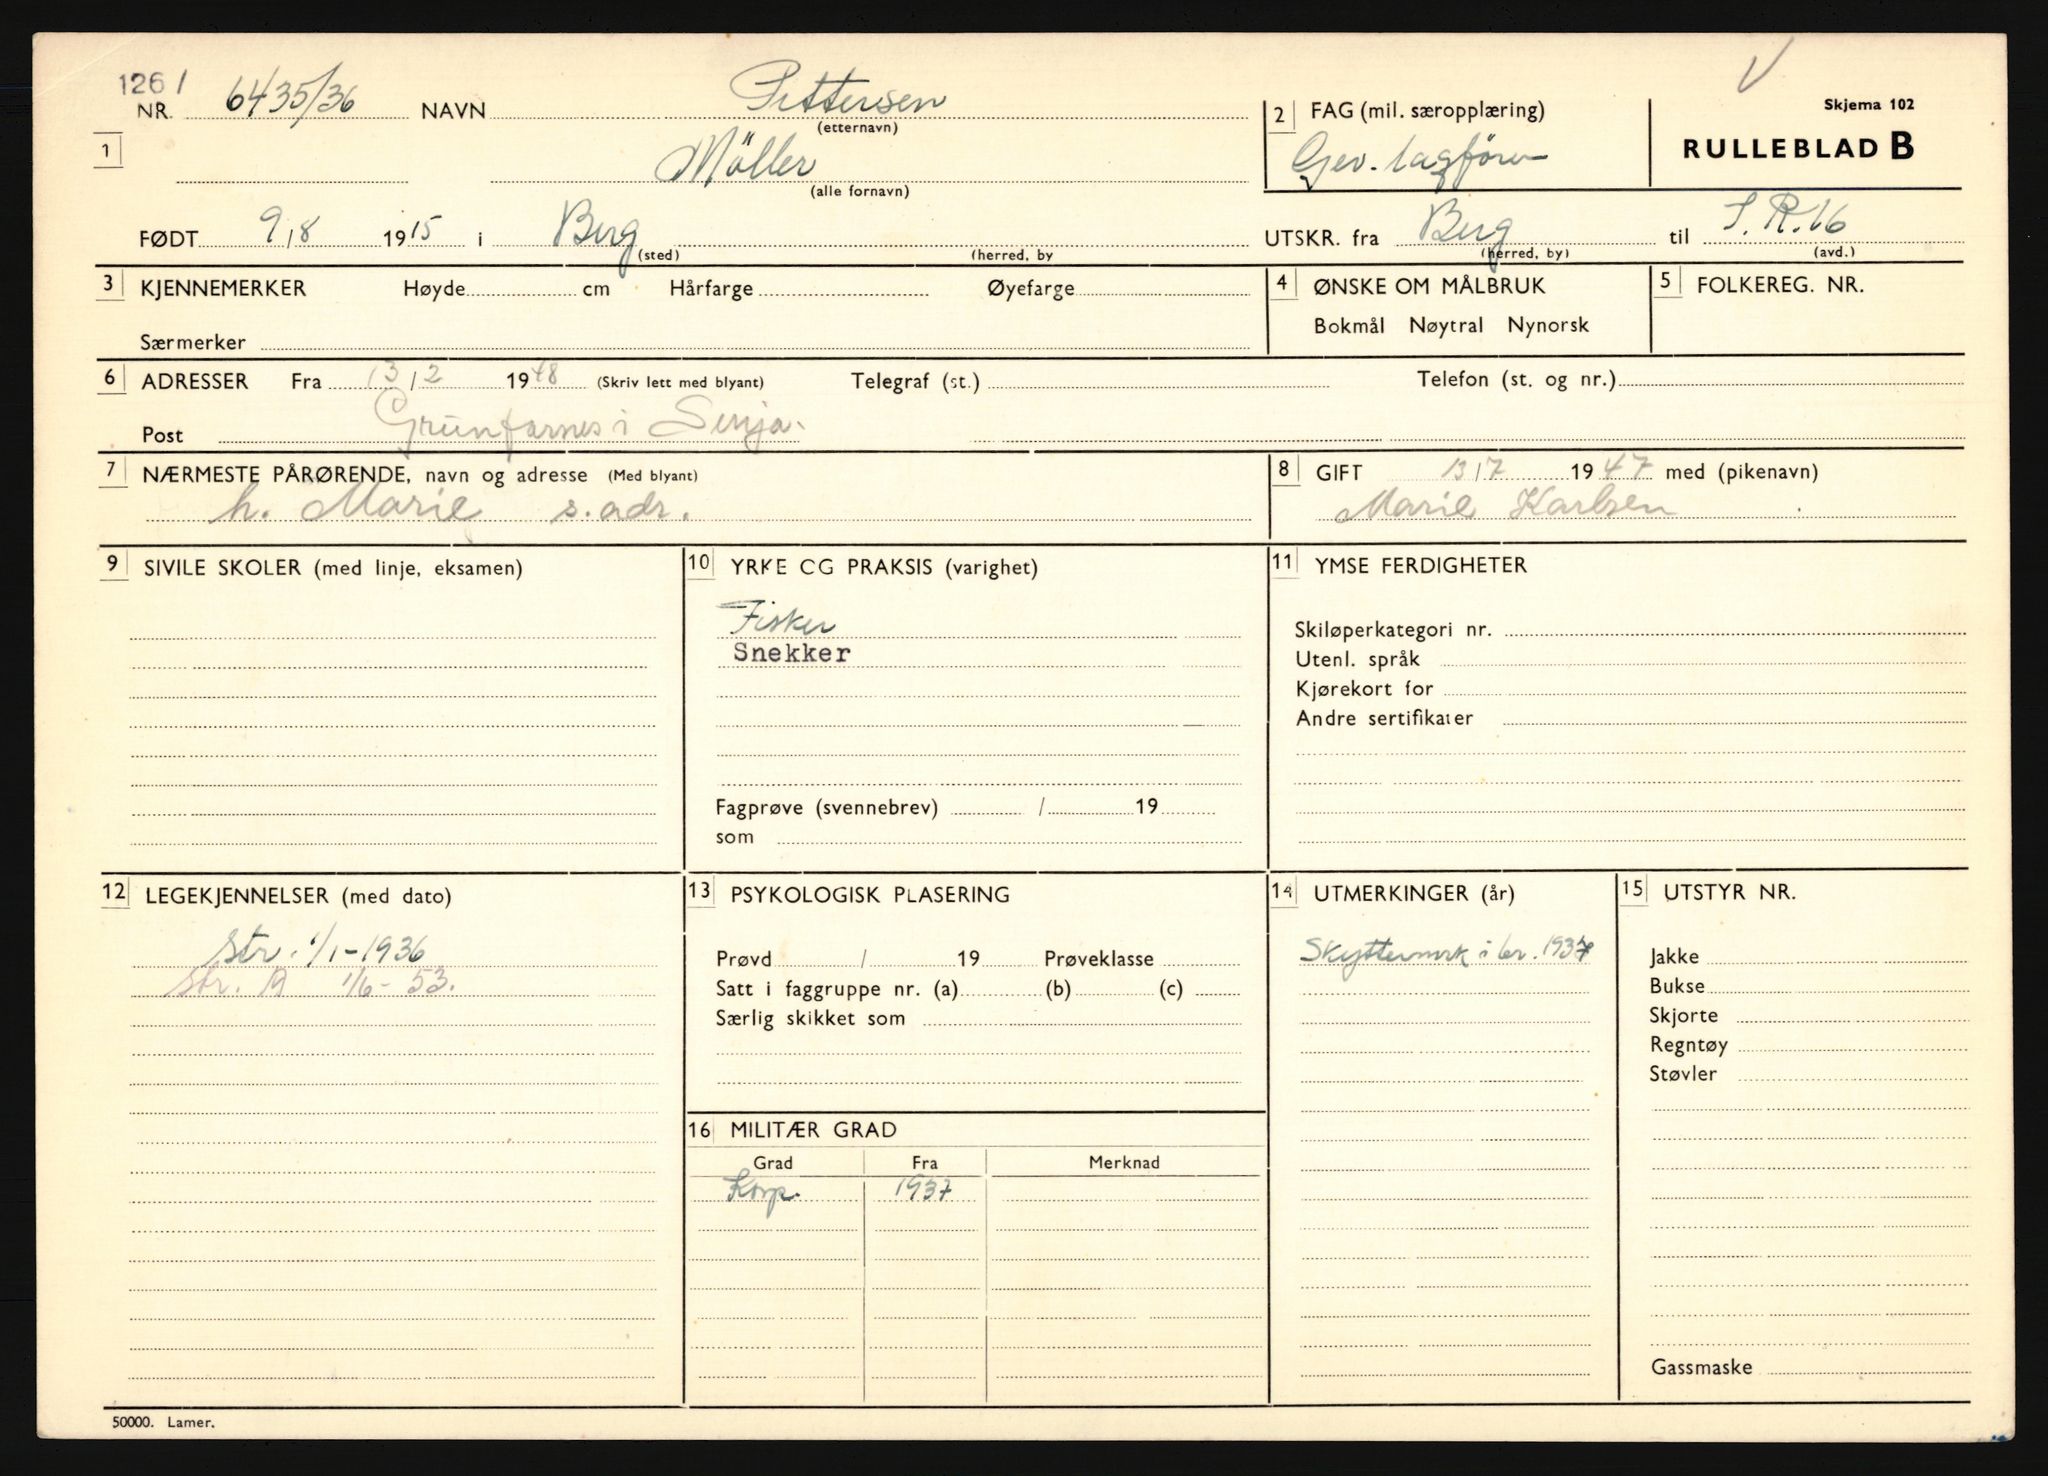 1261
NR. 6435/36 NAVN Pettersen
(etternavn)
1 Möller
(alle fornavn)
2 FAG (mil. særopplæring)
Gev. lagförer
Skjema 102
RULLEBLAD B
FØDT 9/8 1915 i Berg
(sted) (herred, by
UTSKR. fra Berg til S.R.16
(herred, by) (avd.)
3 KJENNEMERKER Høyde cm Hårfarge Øyefarge
Særmerker
4 ØNSKE OM MÅLBRUK
Bokmål Nøytral Nynorsk
5 FOLKEREG. NR.
6 ADRESSER Fra 13/2 1948 (Skriv lett med blyant) Telegraf (st.) Telefon (st. og nr.)
Post Grunfarnes i Senja.
7 NÆRMESTE PÅRØRENDE, navn og adresse (Med blyant)
h. Marie s. adr.
8 GIFT 13/7 1947 med (pikenavn)
Marie Karlsen
9 SIVILE SKOLER (med linje, eksamen)
10 YRKE CG PRAKSIS (varighet)
Fisker
Snekker
Fagprøve (svennebrev) / 19
som
11 YMSE FERDIGHETER
Skiløperkategori nr.
Utenl. språk
Kjørekort for
Andre sertifikater
12 LEGEKJENNELSER (med dato)
Str. 1/1-1936
Str. A 1/6-53.
13 PSYKOLOGISK PLASERING
Prøvd / 19 Prøveklasse
Satt i faggruppe nr. (a) (b) (c)
Særlig skikket som
14 UTMERKINGER (år)
Skyttermrk i br. 1937
15 UTSTYR NR.
Jakke
Bukse
Skjorte
Regntøy
Støvler
Gassmaske
16 MILITÆR GRAD
Grad Fra Merknad
Korp. 1937
50000. Lamer.